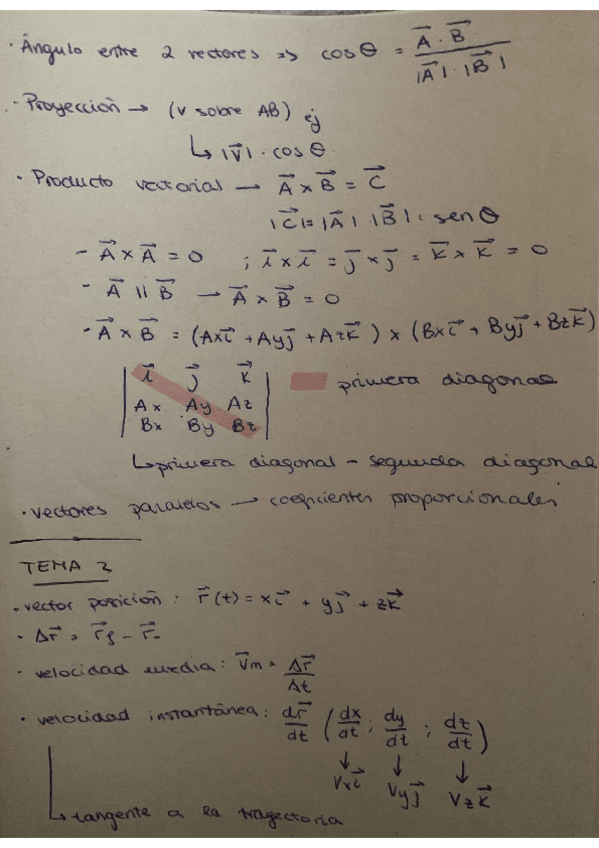 · Ángulo entre 2 vectores => cos θ = A⃗ · B⃗ / |A⃗| · |B⃗|
· Proyección → (v sobre AB) ej
↳ |V⃗| · cos θ
· Producto vectorial → A⃗ × B⃗ = C⃗
|C⃗| = |A⃗| · |B⃗| · sen θ
- A⃗ × A⃗ = 0 ; i⃗ × i⃗ = j⃗ × j⃗ = k⃗ × k⃗ = 0
- A⃗ || B⃗ → A⃗ × B⃗ = 0
- A⃗ × B⃗ = (Axi⃗ + Ayj⃗ + Azk⃗) × (Bxi⃗ + Byj⃗ + Bzk⃗)
| i⃗ j⃗ k⃗ | primera diagonal
| Ax Ay Az |
| Bx By Bz |
↳ primera diagonal - segunda diagonal
· vectores paralelos → coeficientes proporcionales
TEMA 2
· vector posición : r⃗ (t) = xi⃗ + yj⃗ + zk⃗
· Δr⃗ = r⃗f - r⃗o
- velocidad media : V⃗m = Δr⃗ / Δt
· velocidad instantánea : dr⃗/dt (dx/dt ; dy/dt ; dz/dt)
↓ ↓ ↓
Vxi⃗ Vyj⃗ Vzk⃗
↳ tangente a la trayectoria